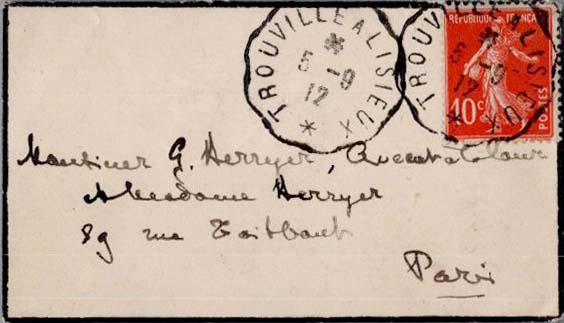 TROUVILLE A LISIEUX
5 -9
12
TROUVILLE A LISIEUX
5 -9
12
RÉPUBLIQUE FRANÇAISE
10c
POSTES
Monsieur G. Herryer, Avocat à la Cour
& Madame Herryer
89 rue Taitbout
Paris